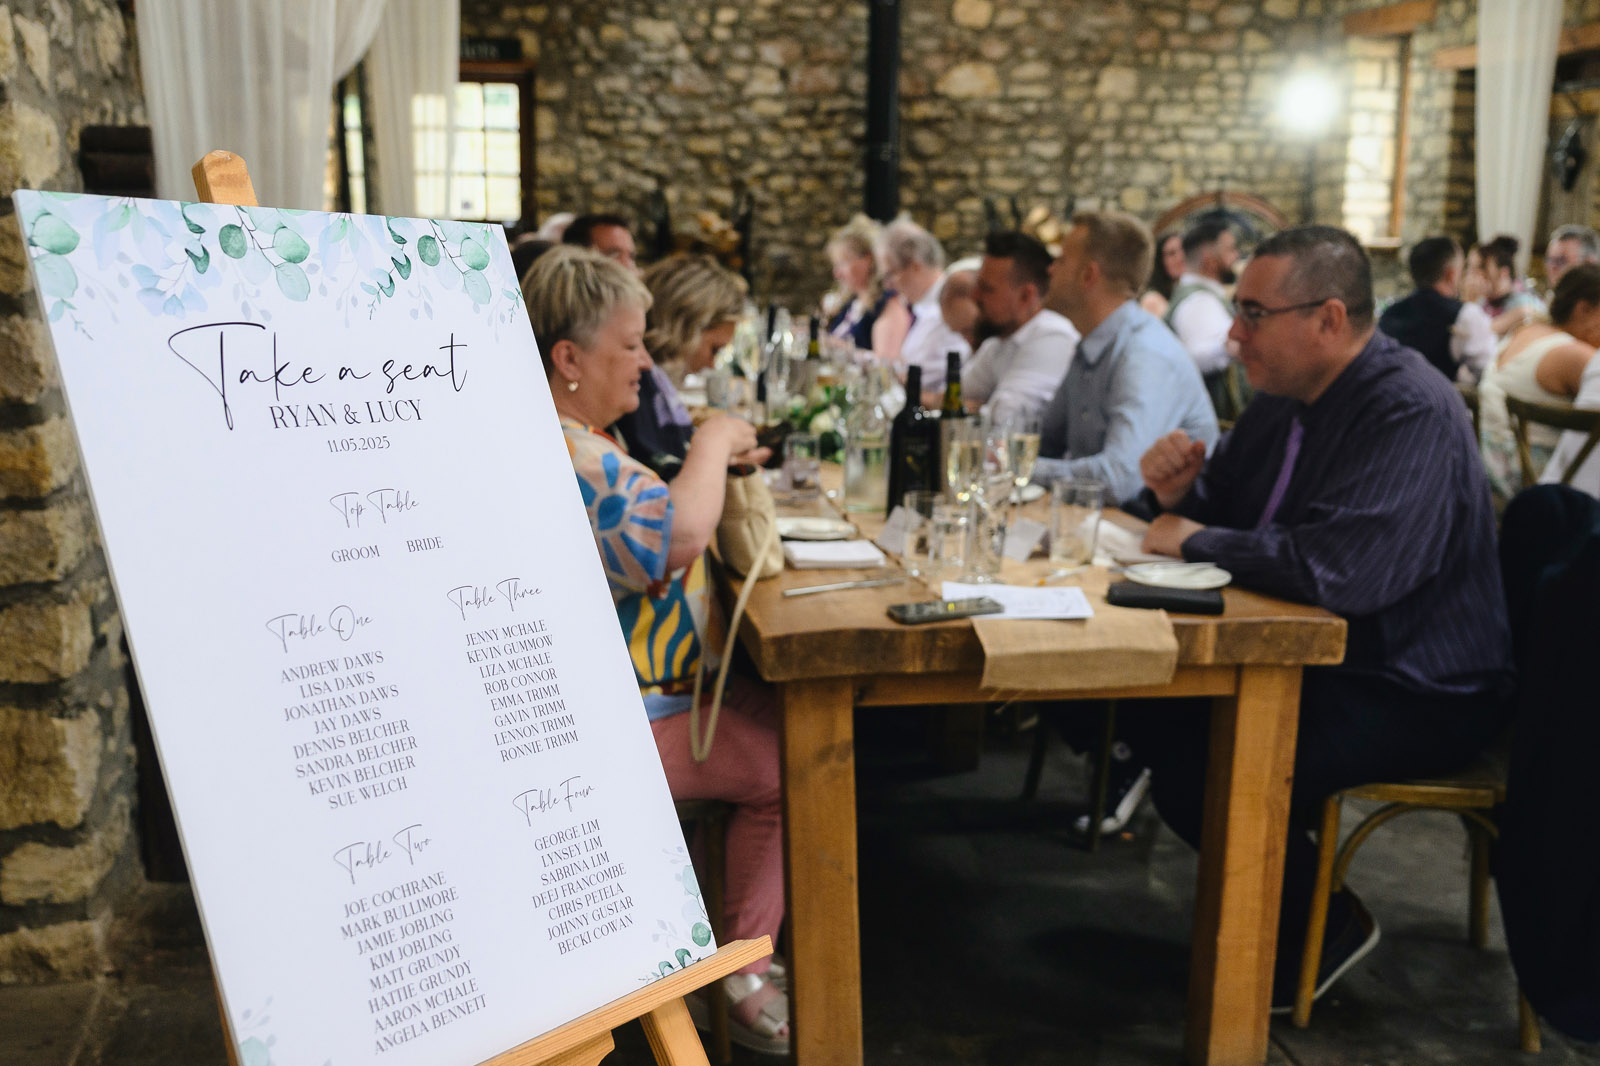 Take a seat
RYAN & LUCY
11.05.2025
Top Table
GROOM BRIDE
Table One
ANDREW DAWS
LISA DAWS
JONATHAN DAWS
JAY DAWS
DENNIS BELCHER
SANDRA BELCHER
KEVIN BELCHER
SUE WELCH
Table Two
JOE COCHRANE
MARK BULLIMORE
JAMIE JOBLING
KIM JOBLING
MATT GRUNDY
HATTIE GRUNDY
AARON MCHALE
ANGELA BENNETT
Table Three
JENNY MCHALE
KEVIN GUMMOW
LIZA MCHALE
ROB CONNOR
EMMA TRIMM
GAVIN TRIMM
LENNON TRIMM
RONNIE TRIMM
Table Four
GEORGE LIM
LYNSEY LIM
SABRINA LIM
DEEJ FRANCOMBE
CHRIS PETELA
JOHNNY GUSTAR
BECKI COWAN